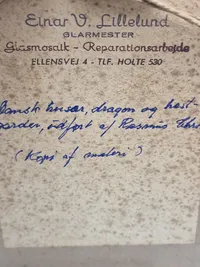 Einar V. Lillelund
GLARMESTER
Glasmosaik - Reparationsarbejde
ELLENSVEJ 4 - TLF. HOLTE 530
Dansk husar, dragon og hest-
garder, udført af Rasmus Chr
(Kopi af maleri)